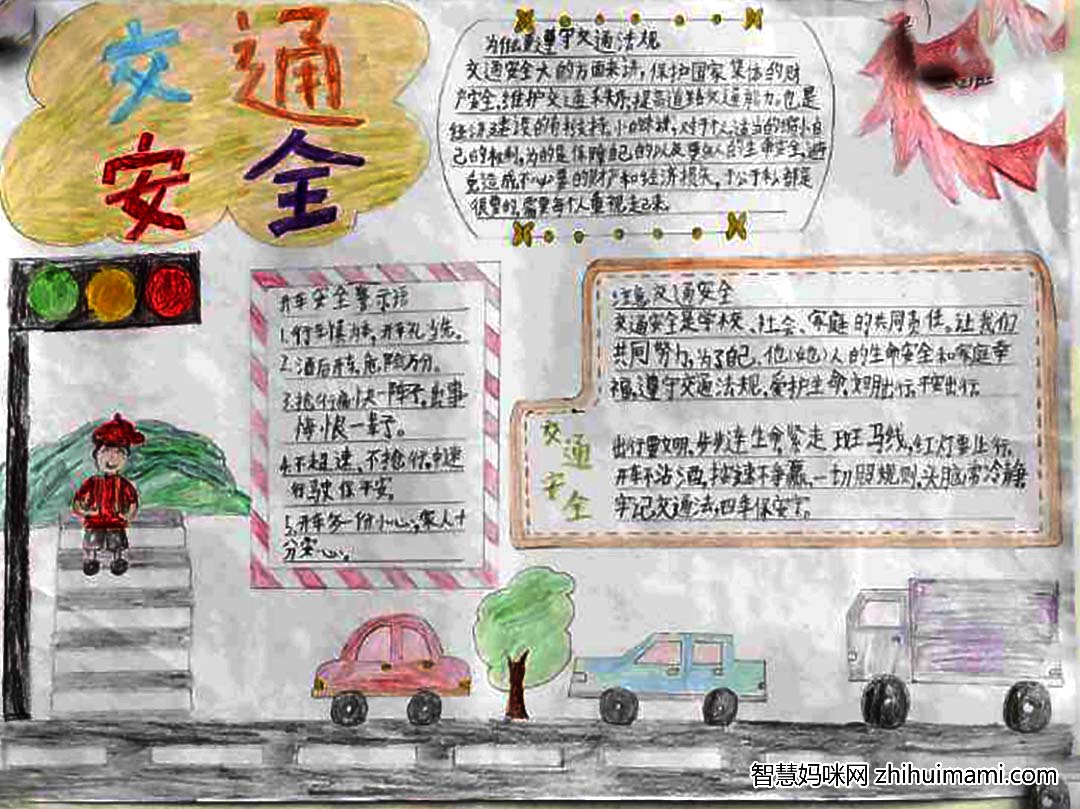 交通
安全
为什么要遵守交通法规
交通安全大的方面来讲,保护国家集体的财
产安全,维护交通秩序,提高道路交通能力。也是
经济建设的有利支持。小的来讲,对于个人适当的缩小自
己的权利,为的是保障自己的以及更多人的生命安全,避
免造成不必要的财产和经济损失,于公于私都是
很重要的,需要每个人重视起来。
开车安全警示语
1.行车慎为本,开车礼当先。
2.酒后开车,危险万分。
3.抢行痛快一阵子,出事
悔恨一辈子。
4.不超速、不抢行,中速
好驶保平安。
5.开车多一份小心,家人十
分安心。
注意交通安全
交通安全是学校、社会、家庭的共同责任。让我们
共同努力,为了自己、他(她)人的生命安全和家庭幸
福,遵守交通法规,爱护生命,文明出行,平安出行。
交通
安全
出行要文明,步步连生命,紧走斑马线,红灯要止行,
开车不沾酒,按速不争赢,一切照规则,头脑常冷静
牢记交通法,四年保安宁。
智慧妈咪网 zhihuimami.com